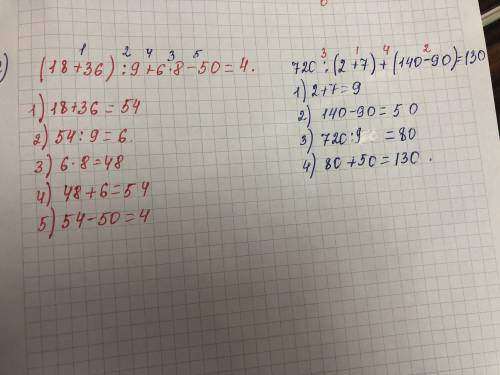 1 2 4 3 5
(18+36) : 9 + 6 · 8 - 50 = 4.
1) 18+36 = 54
2) 54 : 9 = 6.
3) 6 · 8 = 48
4) 48 + 6 = 54
5) 54 - 50 = 4
3 1 4 2
720 : (2+7) + (140-90) = 130
1) 2+7 = 9
2) 140-90 = 50
3) 720 : 9 = 80
4) 80 + 50 = 130.